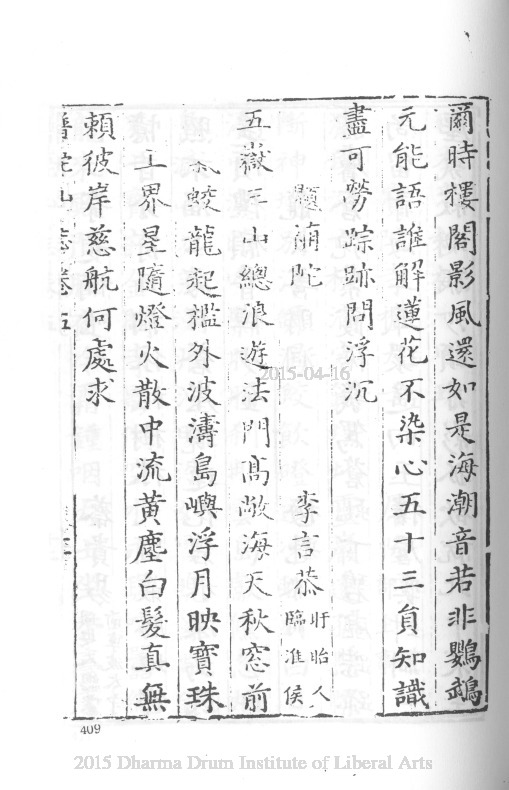 爾時樓閣影風還如是海潮音若非鸚鵡
元能語誰解蓮花不染心五十三員知識
盡可勞踪跡問浮沉
題補陀
李言恭 盱眙人
臨淮侯
五嶽三山總浪遊法門高敞海天秋窓前
蛟龍起檻外波濤島嶼浮月映寶珠
界星隨燈火散中流黃塵白髮真無
賴彼岸慈航何處求
普陀山志卷五
409
2015-04-16
2015 Dharma Drum Institute of Liberal Arts